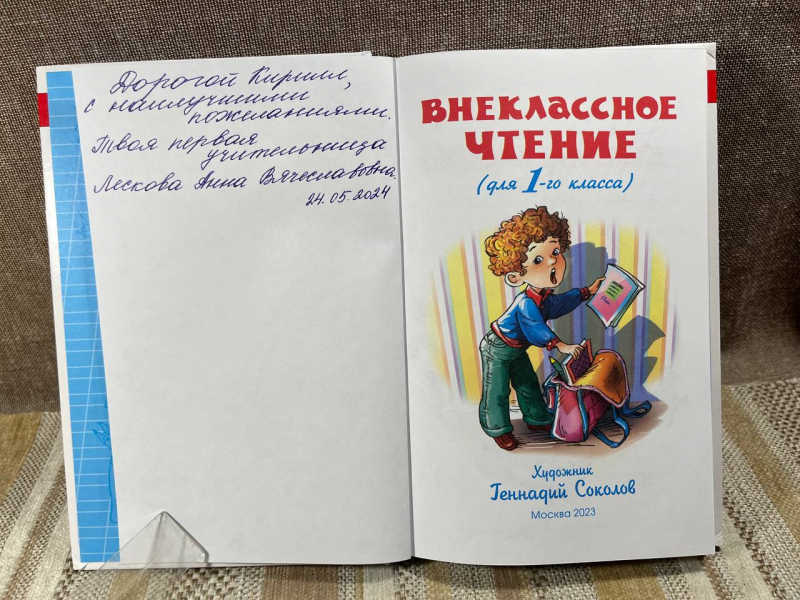 Дорогой Кирилл,
с наилучшими
пожеланиями.
Твоя первая
учительница
Лескова Анна Вячеславовна.
24.05.2024
ВНЕКЛАССНОЕ
ЧТЕНИЕ
(для 1-го класса)
Художник
Геннадий Соколов
Москва 2023